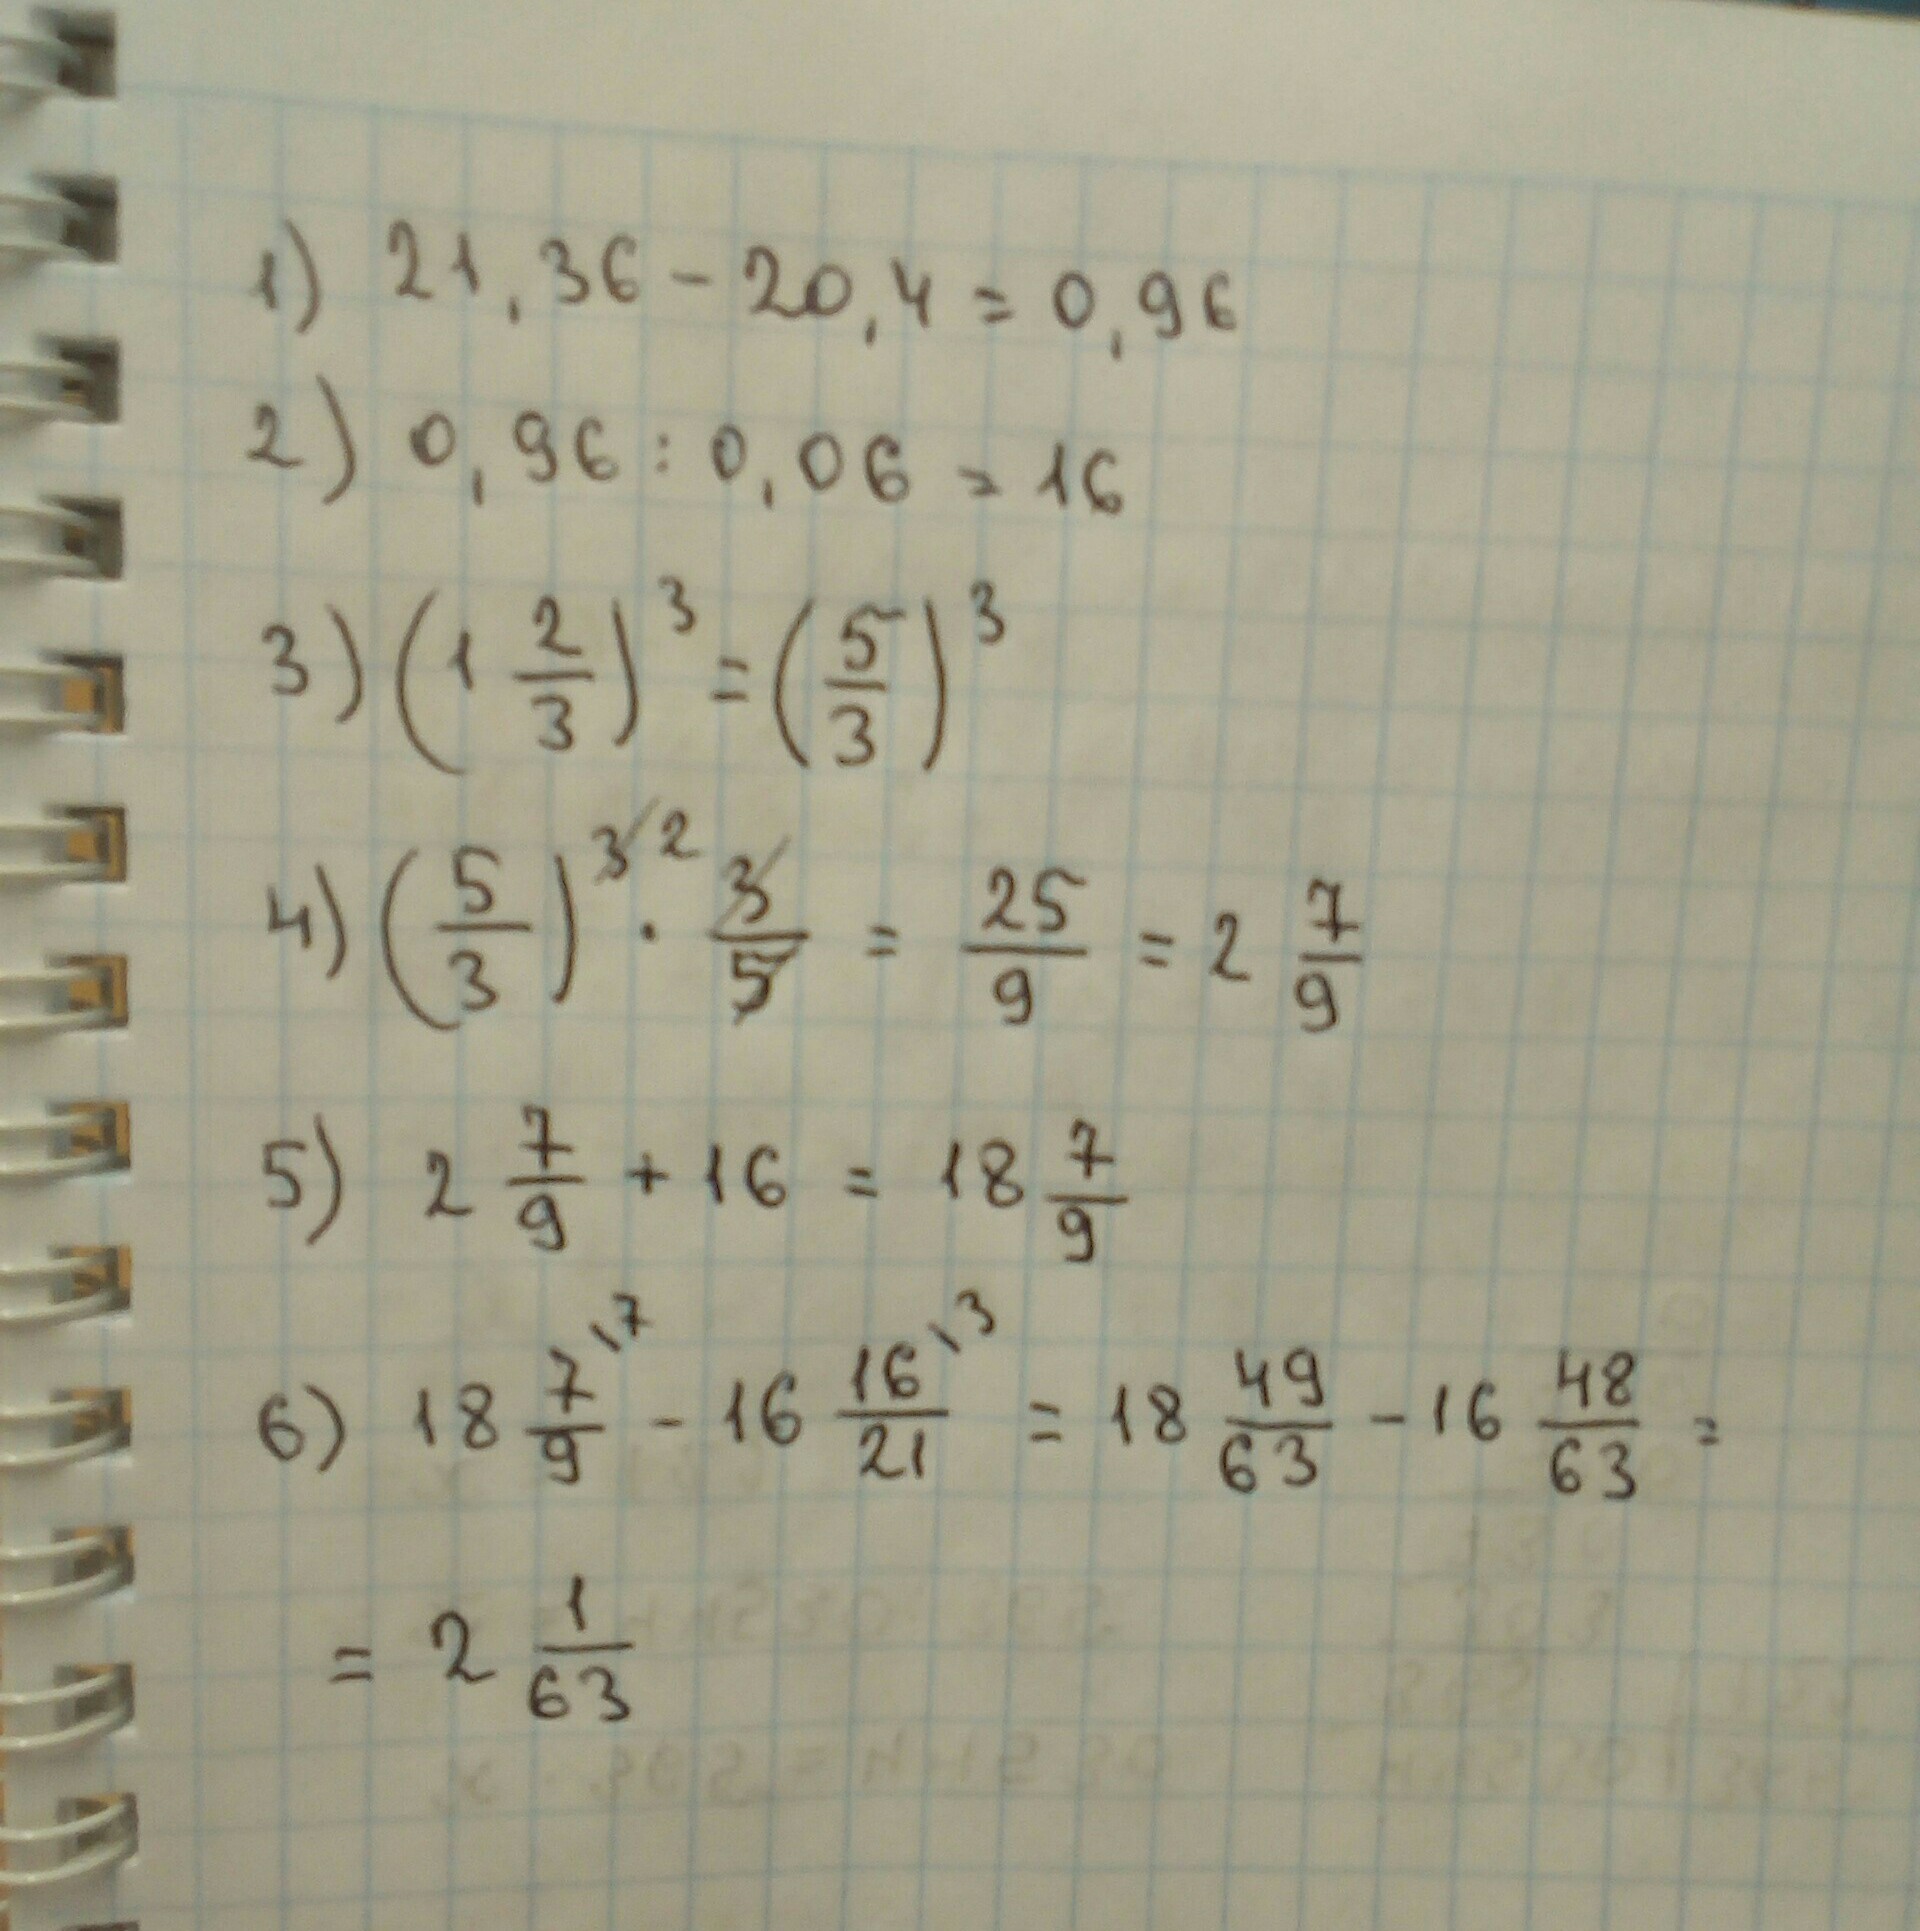 1) 21,36 - 20,4 = 0,96
2) 0,96 : 0,06 = 16
3) (1 2/3)^3 = (5/3)^3
4) (5/3)^3 2 · 3/5 = 25/9 = 2 7/9
5) 2 7/9 + 16 = 18 7/9
6) 18 7/9 \7 - 16 16/21 \3 = 18 49/63 - 16 48/63 =
= 2 1/63